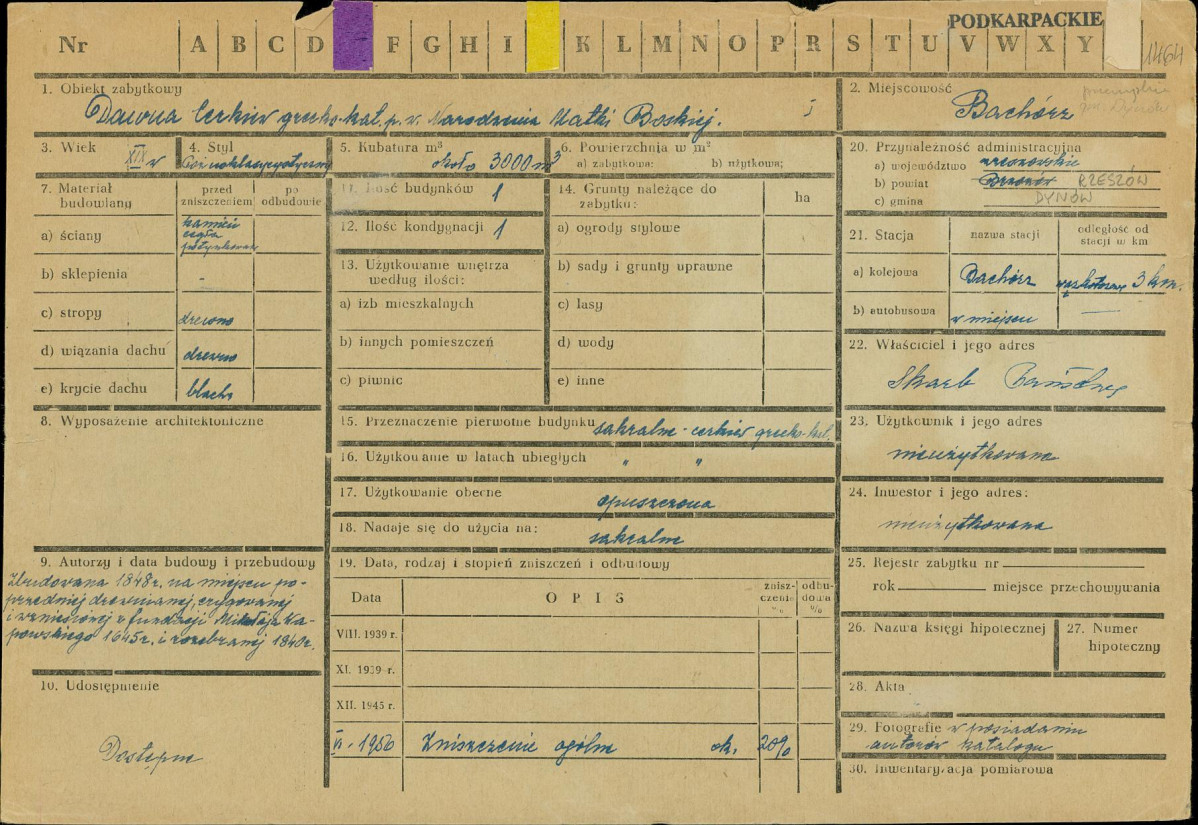 PODKARPACKIE
Nr A B C D F G H I K L M N O P R S T U V W X Y
1464
1. Obiekt zabytkowy
Dawna Cerkiew grecko-kat. p.w. Narodzenia Matki Boskiej.
2. Miejscowość
Bachórz
3. Wiek
XIX w
4. Styl
5. Kubatura m³
około 3000 m³
6. Powierzchnia w m²
a) zabytkowa: b) użytkowa;
20. Przynależność administracyjna
a) województwo rzeszowskie
b) powiat Brzozów RZESZÓW
c) gmina DYNÓW
7. Materiał budowlany
przed zniszczeniem
po odbudowie
a) ściany kamień
cegła
potynkowane
b) sklepienia -
c) stropy drewno
d) wiązania dachu drewno
e) krycie dachu blacha
11. Ilość budynków 1
12. Ilość kondygnacji 1
13. Użytkowanie wnętrza
według ilości:
a) izb mieszkalnych
b) innych pomieszczeń
c) piwnic
14. Grunty należące do
zabytku: ha
a) ogrody stylowe
b) sady i grunty uprawne
c) lasy
d) wody
e) inne
21. Stacja nazwa stacji odległość od
stacji w km
a) kolejowa Bachórz wąskotorowa 3 km.
b) autobusowa w miejscu —
22. Właściciel i jego adres
Skarb Państwa
8. Wyposażenie architektoniczne
15. Przeznaczenie pierwotne budynku sakralne - cerkiew grecko-kat.
16. Użytkowanie w latach ubiegłych " "
17. Użytkowanie obecne opuszczona
18. Nadaje się do użycia na: sakralne
23. Użytkownik i jego adres
nieużytkowana
24. Inwestor i jego adres:
nieużytkowana
9. Autorzy i data budowy i przebudowy
Zbudowana 1848 r. na miejscu po-
przedniej drewnianej, erygowanej
i wzniesionej z fundacji Mikołaja
1645 r. i rozebranej 1840 r.
10. Udostępnienie
Dostępna
19. Data, rodzaj i stopień zniszczeń i odbudowy
Data OPIS znisz-
czenia
% odbu-
dowa
%
VIII. 1939 r.
XI. 1939 r.
XII. 1945 r.
VI - 1956 Zniszczenie ogólne ok. 20%
25. Rejestr zabytku nr
rok miejsce przechowywania
26. Nazwa księgi hipotecznej
27. Numer
hipoteczny
28. Akta
29. Fotografie w posiadaniu
autorów katalogu
30. Inwentaryzacja pomiarowa